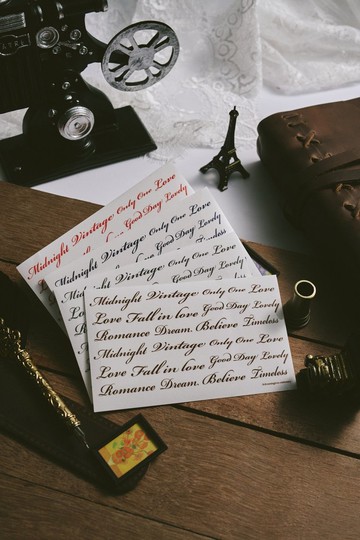 Midnight Vintage Only One Love
Good Day Lovely
Midnight Vintage Only One Love
Good Day Lovely
Midnight Vintage Only One Love
Midnight Vintage Only One Love
Love Fall in love Good Day Lovely
Romance Dream. Believe Timeless
Midnight Vintage Only One Love
Love Fall in love Good Day Lovely
Romance Dream. Believe Timeless